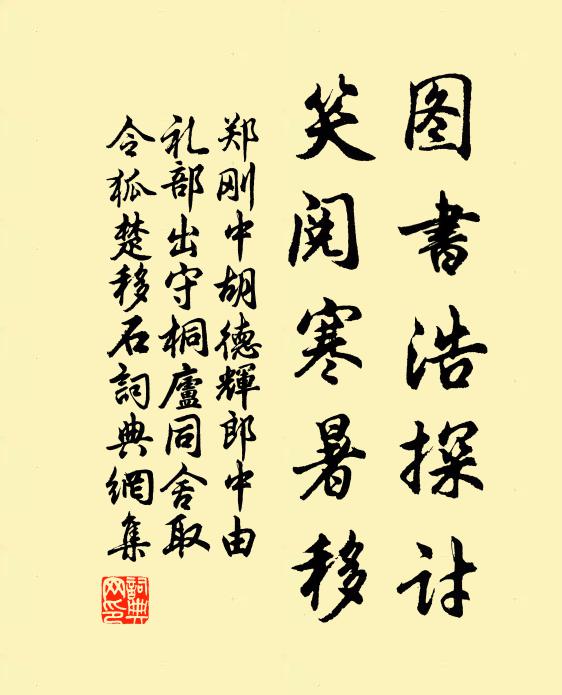 图書浩探讨
笑阅寒暑移
郑刚中胡德輝郎中由
礼部出守桐廬同舍取
令狐楚移石詞典網集
詞典网印